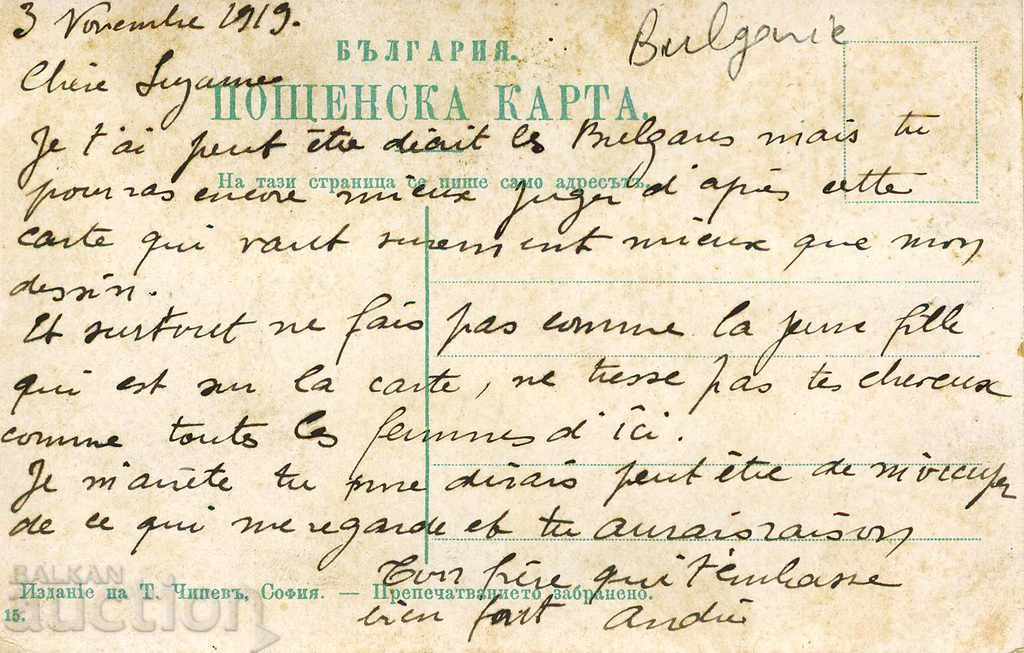 3 Novembre 1919.
Bulgarie
БЪЛГАРИЯ.
Chère Suzanne
ПОЩЕНСКА КАРТА.
Je t'ai peut être décrit les Bulgares mais tu
На тази страница се пише само адресътъ.
pourras encore mieux juger d'après cette
carte qui vaut surement mieux que mon
dessin.
Et surtout ne fais pas comme la jeune fille
qui est sur la carte, ne tresse pas tes cheveux
comme toutes les femmes d'ici.
Je m'arrête tu me dirais peut être de m'occuper
de ce qui me regarde et tu aurais raison
Ton frère qui t'embrasse
BALKAN
Издание на Т. Чипевъ, София. — Препечатванието забранено.
bien fort André
15.
auction